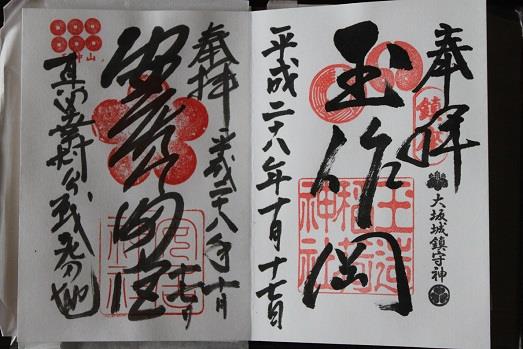 奉拝
大坂城鎮守神
玉作岡
玉造稲荷神社
平成二十八年十月十七日
奉拝 平成二八年十月
十七日
真田幸村公戦死の地